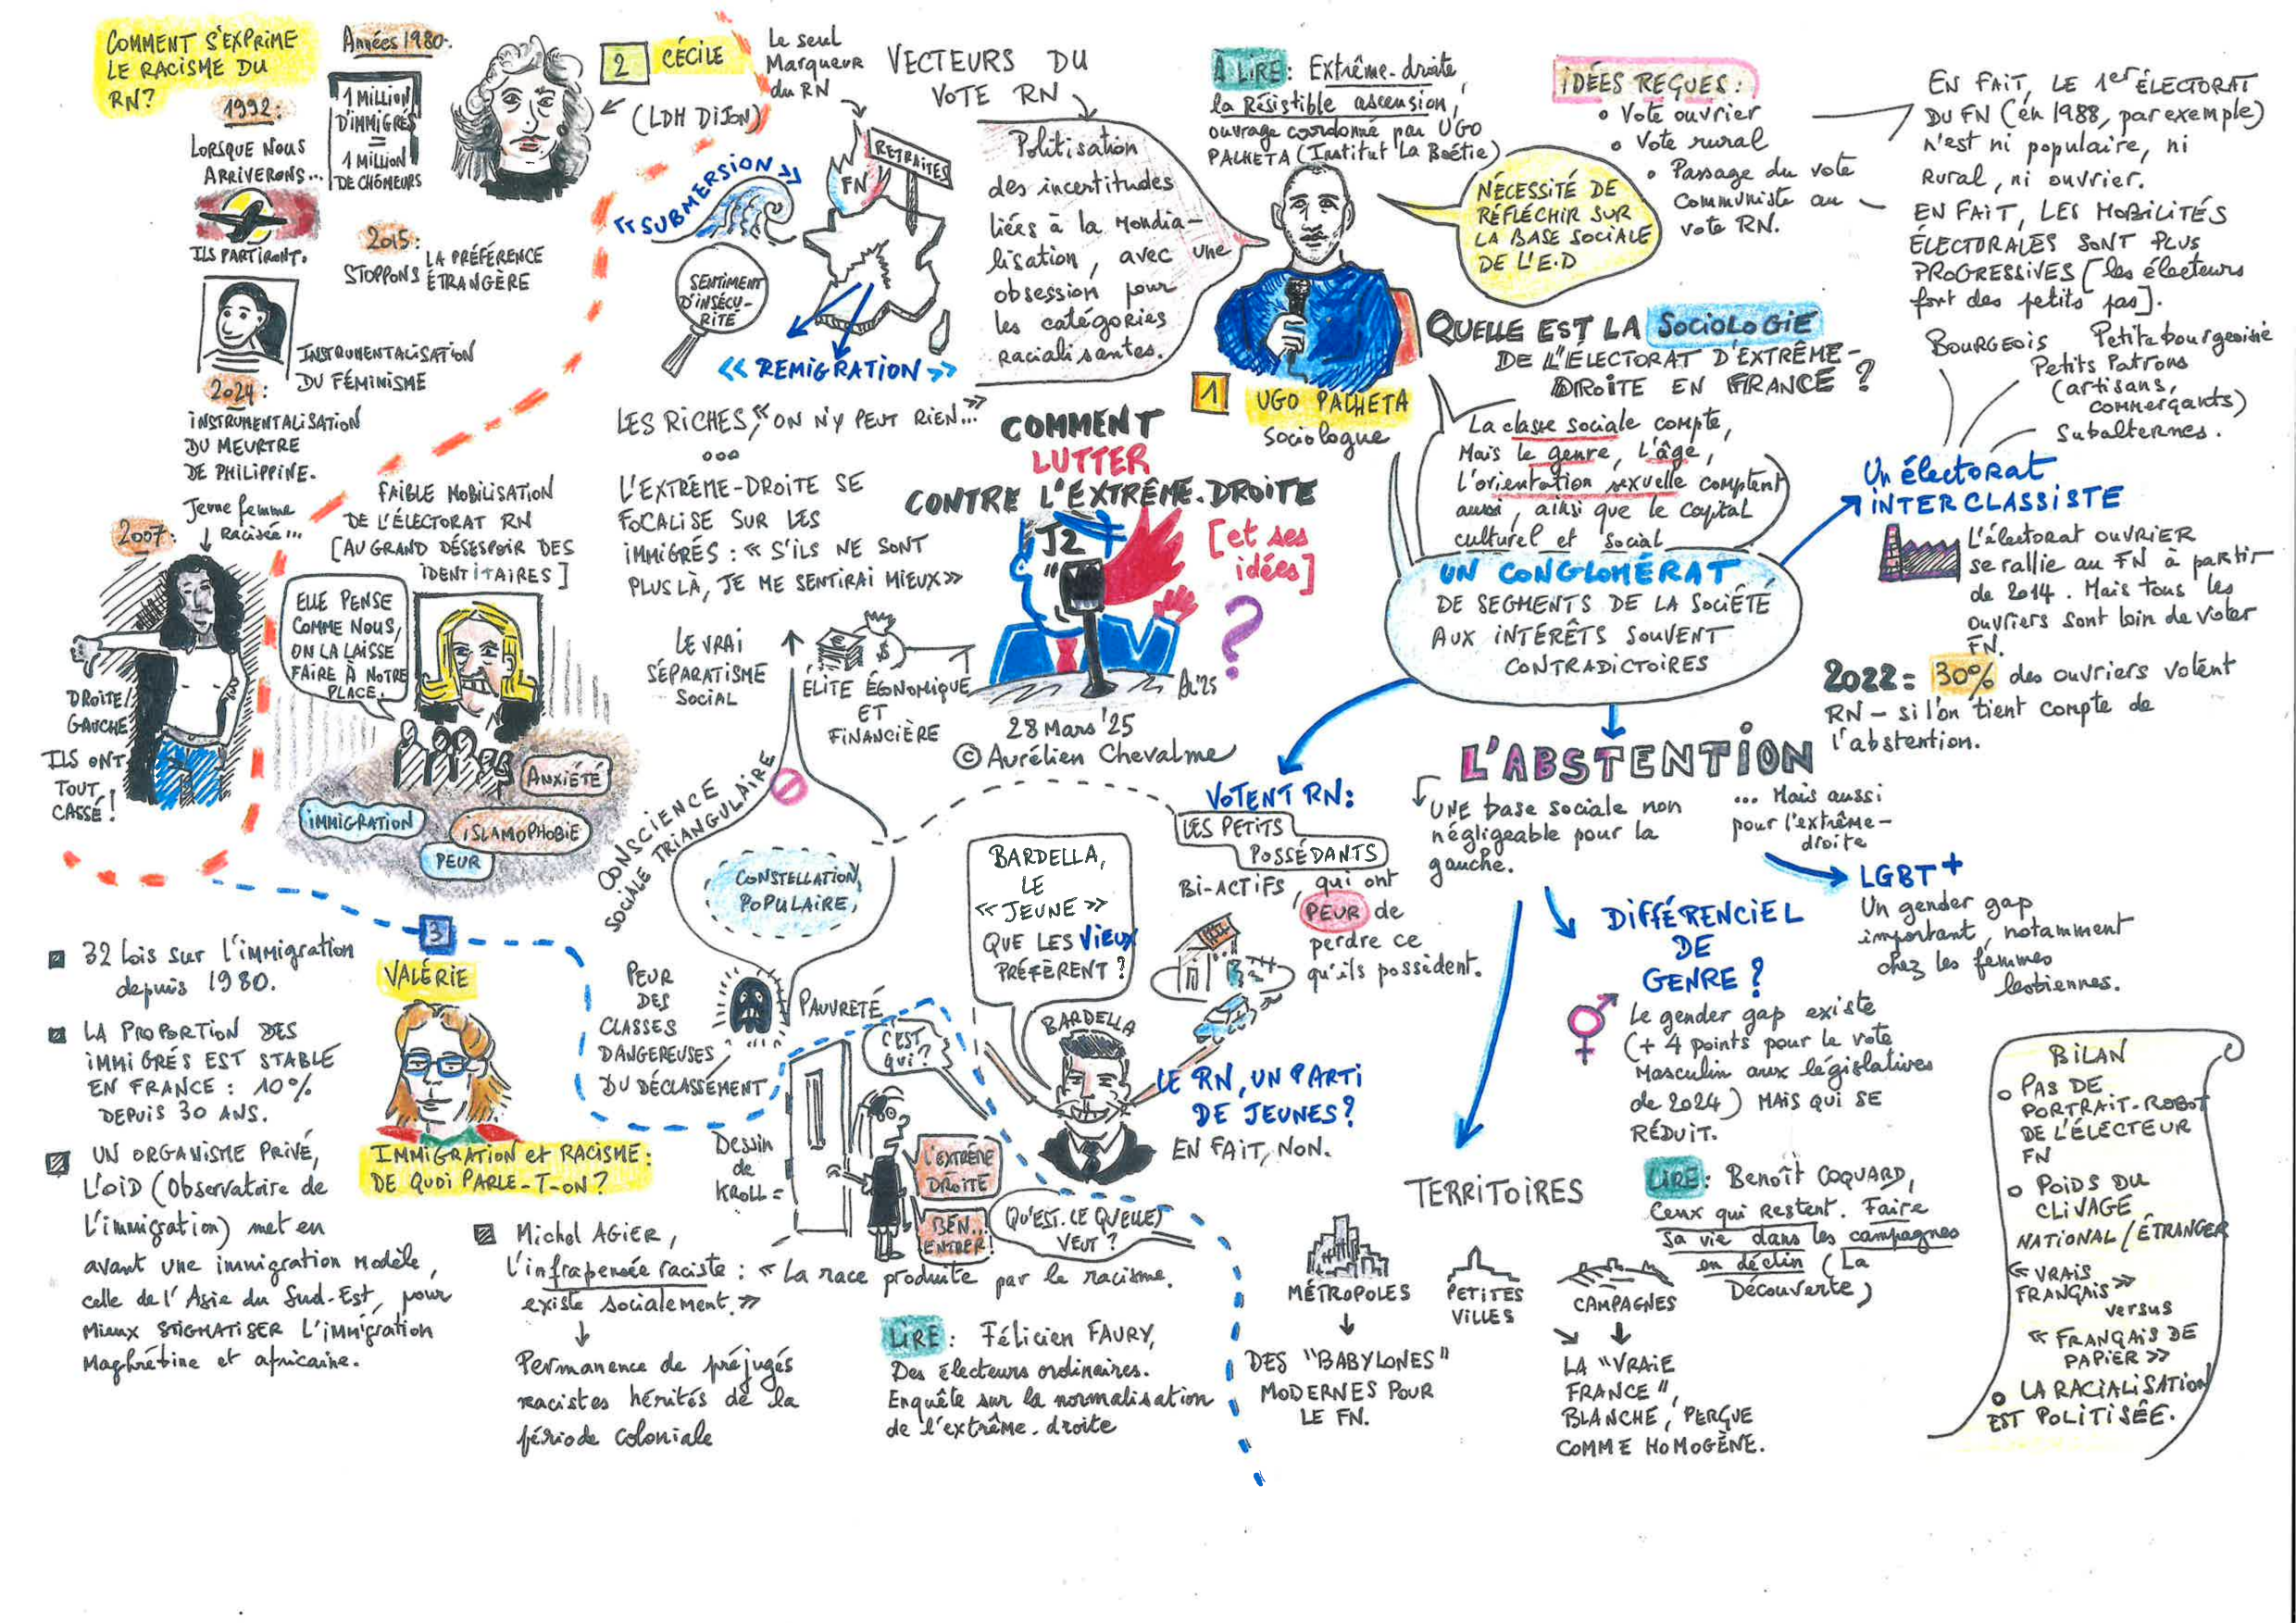 COMMENT S'EXPRIME
LE RACISME DU
RN?
Années 1980:
1 MILLION
D'IMMIGRÉS
=
1 MILLION
DE CHÔMEURS
1992:
LORSQUE NOUS
ARRIVERONS...
ILS PARTIRONT.
2015:
STOPPONS LA PRÉFÉRENCE
ÉTRANGÈRE
INSTRUMENTALISATION
DU FÉMINISME
2024:
INSTRUMENTALISATION
DU MEURTRE
DE PHILIPPINE.
Jeune femme
Racisée...
2007:
DROITE/
GAUCHE
ILS ONT
TOUT
CASSÉ!
2 CÉCILE
(LDH DIJON)
Le seul
Marqueur
du RN
FN
RETRAITES
« SUBMERSION »
SENTIMENT
D'INSÉCU-
RITÉ
« REMIGRATION »
VECTEURS DU
VOTE RN
Politisation
des incertitudes
liées à la Mondia-
lisation, avec une
obsession pour
les catégories
Racialisantes.
LES RICHES, « ON N'Y PEUT RIEN... »
L'EXTRÊME-DROITE SE
FOCALISE SUR LES
IMMIGRÉS : « S'ILS NE SONT
PLUS LÀ, JE ME SENTIRAI MIEUX »
FAIBLE MOBILISATION
DE L'ÉLECTORAT RN
[AU GRAND DÉSESPOIR DES
IDENTITAIRES]
ELLE PENSE
COMME NOUS,
ON LA LAISSE
FAIRE À NOTRE
PLACE.
ANXIÉTÉ
IMMIGRATION
ISLAMOPHOBIE
PEUR
LE VRAI
SÉPARATISME
SOCIAL
ÉLITE ÉCONOMIQUE
ET
FINANCIÈRE
CONSCIENCE
SOCIALE TRIANGULAIRE
CONSTELLATION
POPULAIRE
PEUR
DES
CLASSES
DANGEREUSES
DU DÉCLASSEMENT
PAUVRETÉ
COMMENT
LUTTER
CONTRE L'EXTRÊME-DROITE
[et ses
idées]
?
J2
28 Mars '25
© Aurélien Chevalme
À LIRE : Extrême-droite,
la Résistible ascension,
ouvrage coordonné par UGO
PALHETA (Institut La Boétie)
1 UGO PALHETA
Sociologue
NÉCESSITÉ DE
RÉFLÉCHIR SUR
LA BASE SOCIALE
DE L'E.D
IDÉES REÇUES :
• Vote ouvrier
• Vote rural
• Passage du vote
Communiste au
vote RN.
EN FAIT, LE 1er ÉLECTORAT
DU FN (en 1988, par exemple)
n'est ni populaire, ni
Rural, ni ouvrier.
EN FAIT, LES MOBILITÉS
ÉLECTORALES SONT PLUS
PROGRESSIVES [les électeurs
font des petits pas].
QUELLE EST LA SOCIOLOGIE
DE L'ÉLECTORAT D'EXTRÊME-
DROITE EN FRANCE ?
La classe sociale compte,
Mais le genre, l'âge,
l'orientation sexuelle comptent
aussi, ainsi que le capital
culturel et social
UN CONGLOMÉRAT
DE SEGMENTS DE LA SOCIÉTÉ
AUX INTÉRÊTS SOUVENT
CONTRADICTOIRES
BOURGEOIS
Petite bourgeoisie
Petits Patrons
(artisans,
commerçants)
Subalternes.
Un électorat
INTERCLASSISTE
L'électorat OUVRIER
se rallie au FN à partir
de 2014. Mais tous les
ouvriers sont loin de voter
FN.
2022 = 30% des ouvriers votent
RN - si l'on tient compte de
l'abstention.
VOTENT RN :
LES PETITS
POSSÉDANTS
BI-ACTIFS, qui ont
PEUR de
perdre ce
qu'ils possèdent.
L'ABSTENTION
UNE base sociale non
négligeable pour la
gauche.
... Mais aussi
pour l'extrême-
droite
LGBT+
Un gender gap
important, notamment
chez les femmes
lesbiennes.
DIFFÉRENCIEL
DE
GENRE ?
Le gender gap existe
(+ 4 points pour le vote
Masculin aux législatives
de 2024) MAIS QUI SE
RÉDUIT.
BARDELLA,
LE
« JEUNE »
QUE LES VIEUX
PRÉFÈRENT ?
BARDELLA
LE RN, UN PARTI
DE JEUNES ?
EN FAIT, NON.
TERRITOIRES
MÉTROPOLES
PETITES
VILLES
CAMPAGNES
DES "BABYLONES"
MODERNES POUR
LE FN.
LA "VRAIE
FRANCE",
BLANCHE, PERÇUE
COMME HOMOGÈNE.
LIRE : Benoît COQUARD,
Ceux qui Restent. Faire
sa vie dans les campagnes
en déclin (La
Découverte)
BILAN
• PAS DE
PORTRAIT-ROBOT
DE L'ÉLECTEUR
FN
• POIDS DU
CLIVAGE
NATIONAL / ÉTRANGER
« VRAIS
FRANÇAIS »
versus
« FRANÇAIS DE
PAPIER »
• LA RACIALISATION
EST POLITISÉE.
3
VALÉRIE
IMMIGRATION et RACISME :
DE QUOI PARLE-T-ON ?
32 lois sur l'immigration
depuis 1980.
LA PROPORTION DES
IMMIGRÉS EST STABLE
EN FRANCE : 10%
DEPUIS 30 ANS.
UN ORGANISME PRIVÉ,
L'OID (Observatoire de
l'immigration) met en
avant une immigration modèle,
celle de l'Asie du Sud-Est, pour
Mieux STIGMATISER l'immigration
Maghrébine et africaine.
Michel AGIER,
l'infrapensée raciste : « La race produite par le racisme,
existe socialement. »
Permanence de préjugés
racistes hérités de la
période coloniale
Dessin
de
KROLL =
C'EST
QUI ?
L'EXTRÊME
DROITE
QU'EST-CE QU'ELLE
VEUT ?
BEN...
ENTRER!
LIRE : Félicien FAURY,
Des électeurs ordinaires.
Enquête sur la normalisation
de l'extrême-droite